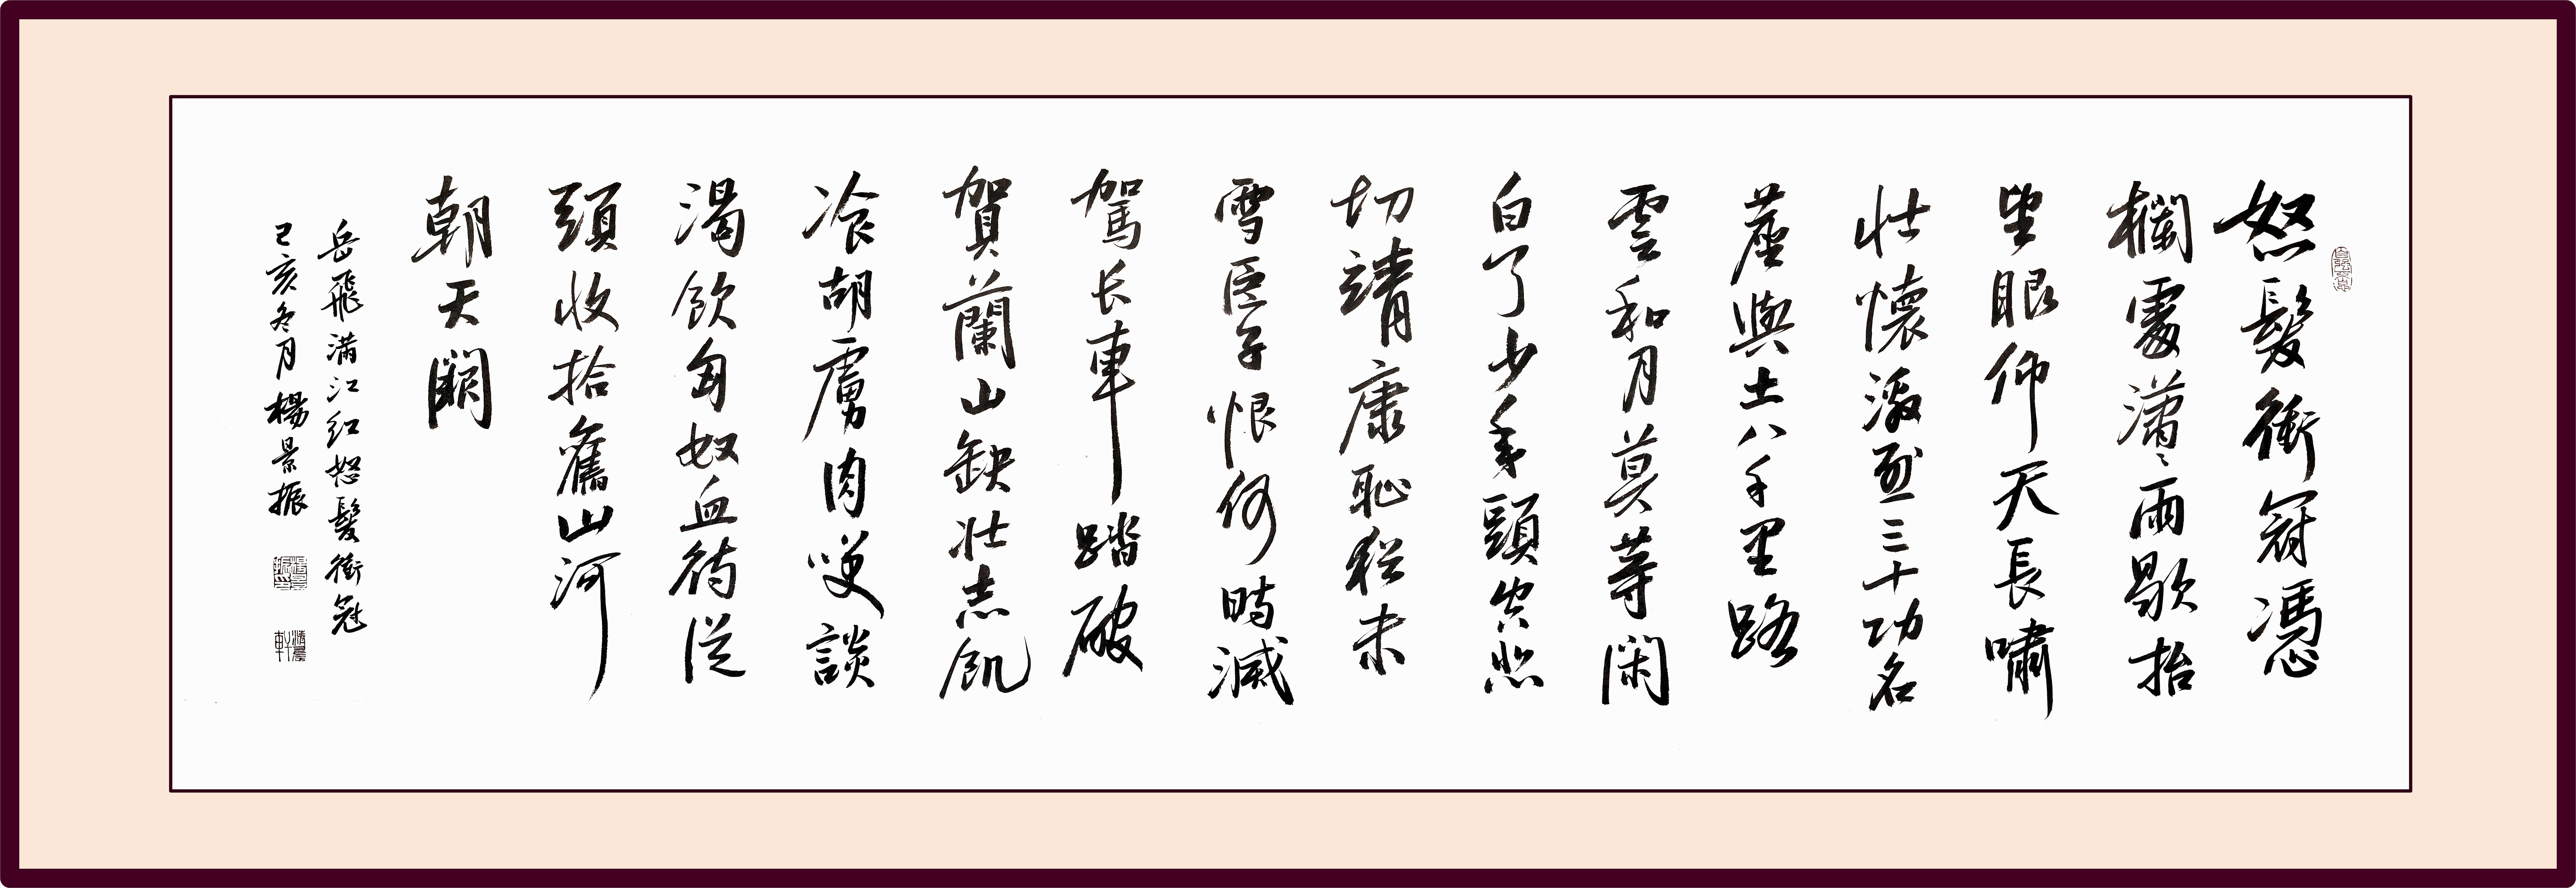 怒髮衝冠憑
欄處瀟〻雨歇抬
望眼仰天長嘯
壯懷激烈三十功名
塵與土八千里路
雲和月莫等閑
白了少年頭空悲
切靖康恥猶未
雪臣子恨何時滅
駕长車踏破
賀蘭山缺壯志飢
飡胡虜肉笑談
渴飲匈奴血待從
頭收拾舊山河
朝天闕
岳飛满江红怒髮衝冠
己亥冬月楊景振